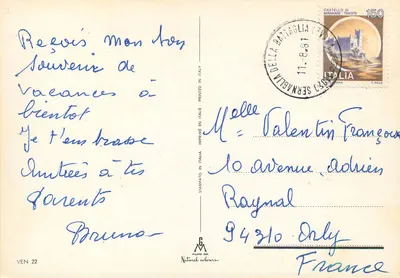 Reçois mon bon
souvenir de
vacances à
bientot
Je t'embrasse
Amitiées à tes
parents
Bruno
VEN 22
STAMPATO IN ITALIA
IMPRIMÉ EN ITALIE
PRINTED IN ITALY
MILANO
Natural colour
SERNAGLIA DELLA BATTAGLIA (TV)
11.8.81
CASTELLO DI
MIRAMARE · TRIESTE
150
ITALIA
Melle Valentin Françoise
10 avenue Adrien
Raynal
94310 Orly
France